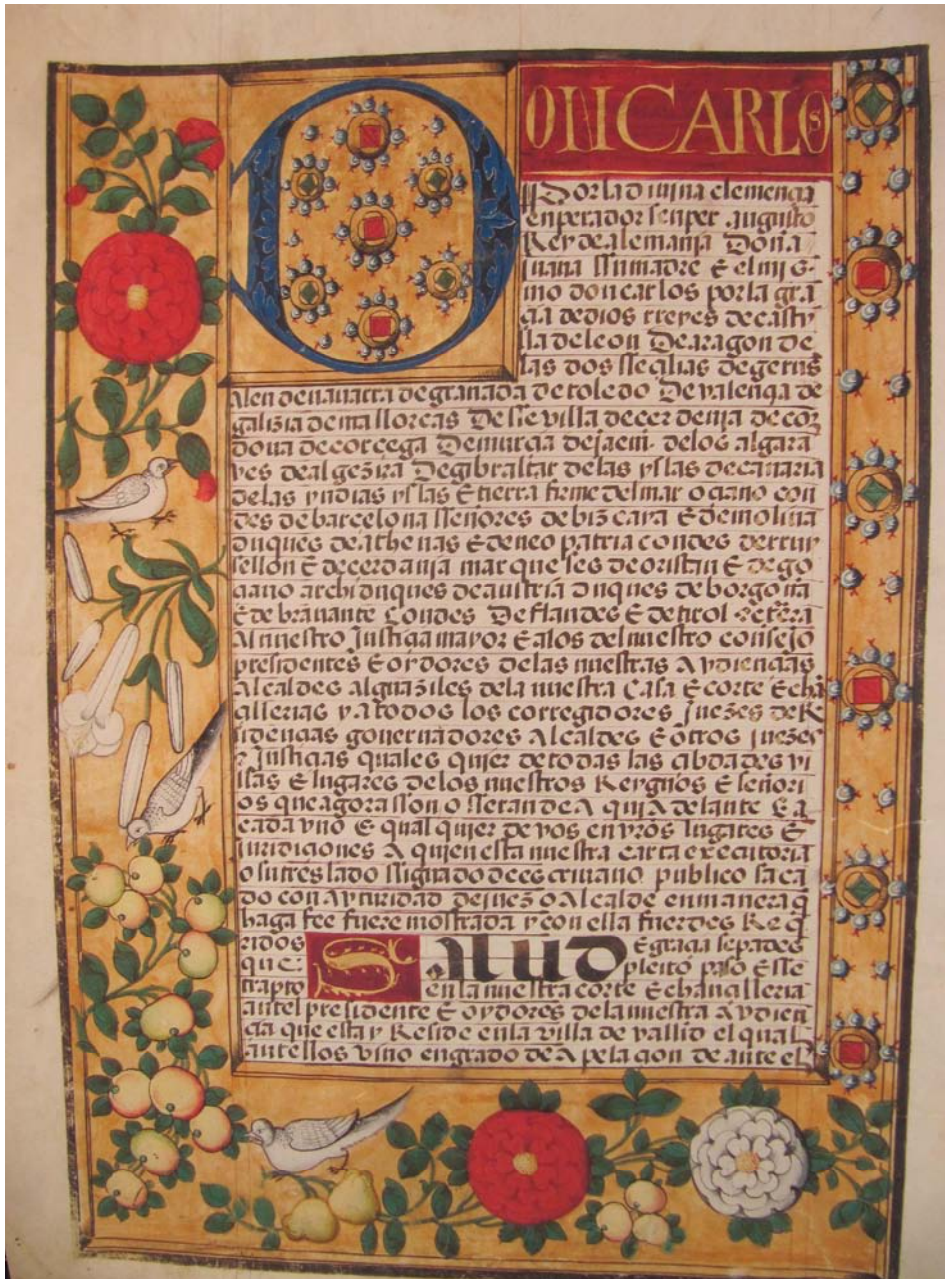 DON CARLOS
Por la divina clemençia
enperador senper augusto
Rey de alemania Doña
juana ssu madre E el mis-
mo don carlos por la gra
çia de dios rreyes de casty
lla de leon De aragon de
las dos sseçilias de gerus
alen de navarra de granada de toledo De valençia de
galizia de mallorcas De sse villa de cerdenia de cor
dova de corcega De murcia de jaem. de los algara
ves de algezira De gibraltar de las yslas de canaria
de las yndias yslas E tierra firme del mar oçiano con
des de barcelona sseñores de bizcaya E de molina
duques de athenas E de neo patria condes de rruy
sellon E de cerdania marqueses de oristan E de go
çiano archiduques de austria duques de borgoña
E de bravante Condes De flandes E de tirol
Al nuestro Justiçia mayor E a los del nuestro consejo
presidentes E oydores de las nuestras Avdiençias
Alcaldes alguaziles de la nuestra Casa E corte E chã
çillerias y a todos los corregidores juezes de Re
sidençias governadores Alcaldes E otros juezes
Justiçias quales quier de todas las çibdades vi
llas E lugares de los nuestros Reygnos E señori
os que agora sson o sseran de A qui A delante E a
cada vno E qual quier de vos en vros lugares E
juridiçiones A quien esta nuestra carta executoria
o su treslado ssignado de escrivano publico saca
do con avturidad de juez o Alcalde en manera q
haga fee fuere mostrada y con ella fuerdes Req
ridos Salud E graçia sepades
que pleito paso E sse
trapto en la nuestra corte E chançilleria
ante el presidente E oydores de la nuestra Avdien
çia que esta y Reside en la villa de vallid el qual
ante ellos vino en grado de A pelaçion de ante el